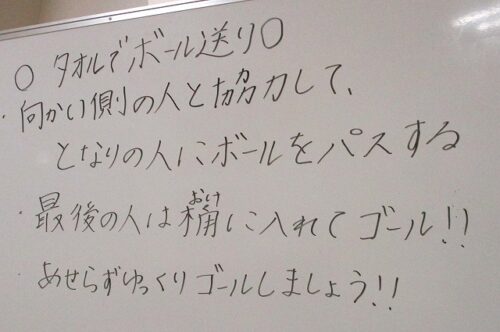 ○ タオルでボール送り○
・向かい側の人と協力して、
となりの人にボールをパスする
・最後の人は桶(おけ)に入れてゴール!!
あせらずゆっくりゴールしましょう!!